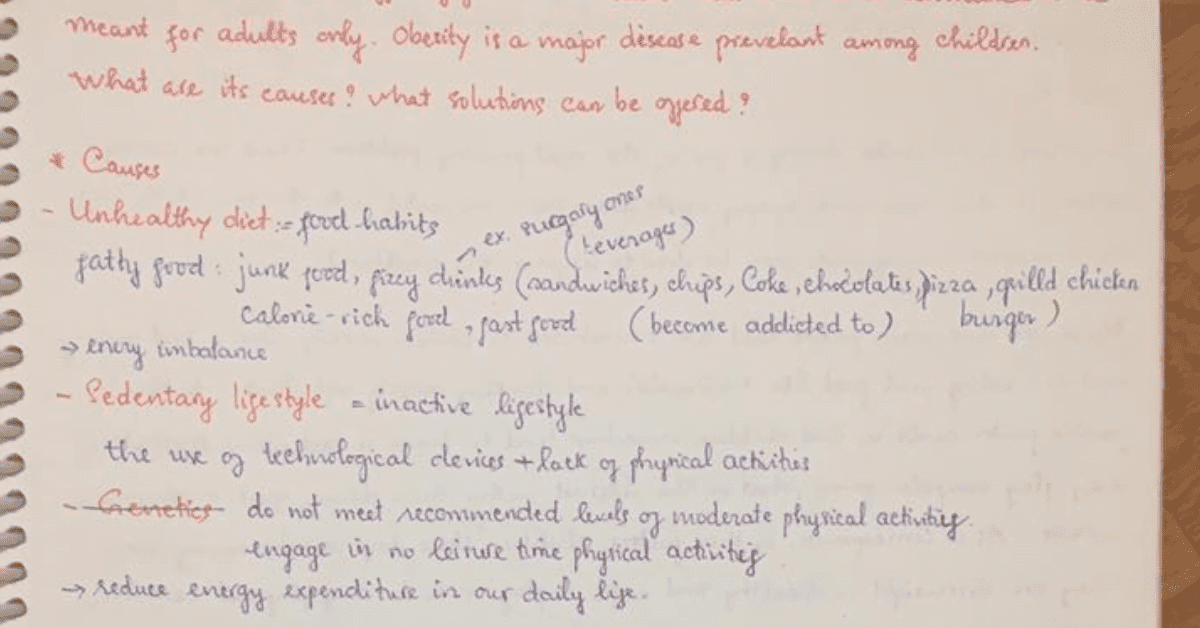 meant for adults only. Obesity is a major disease prevelant among children.
What are its causes? What solutions can be offered?
* Causes
- Unhealthy diet := food-habits
ex. surgary ones
(beverages)
fatty food : junk food, fizzy drinks (sandwiches, chips, Coke, chocolates, pizza, grilld chicken
calorie-rich food, fast food (become addicted to) burger)
→ enery imbalance
- Sedentary lifestyle = inactive lifestyle
the use of technological devices + lack of physical activities
- Genetics do not meet recommended levels of moderate physical activities.
engage in no leisure time physical activities
→ reduce energy expenditure in our daily life.